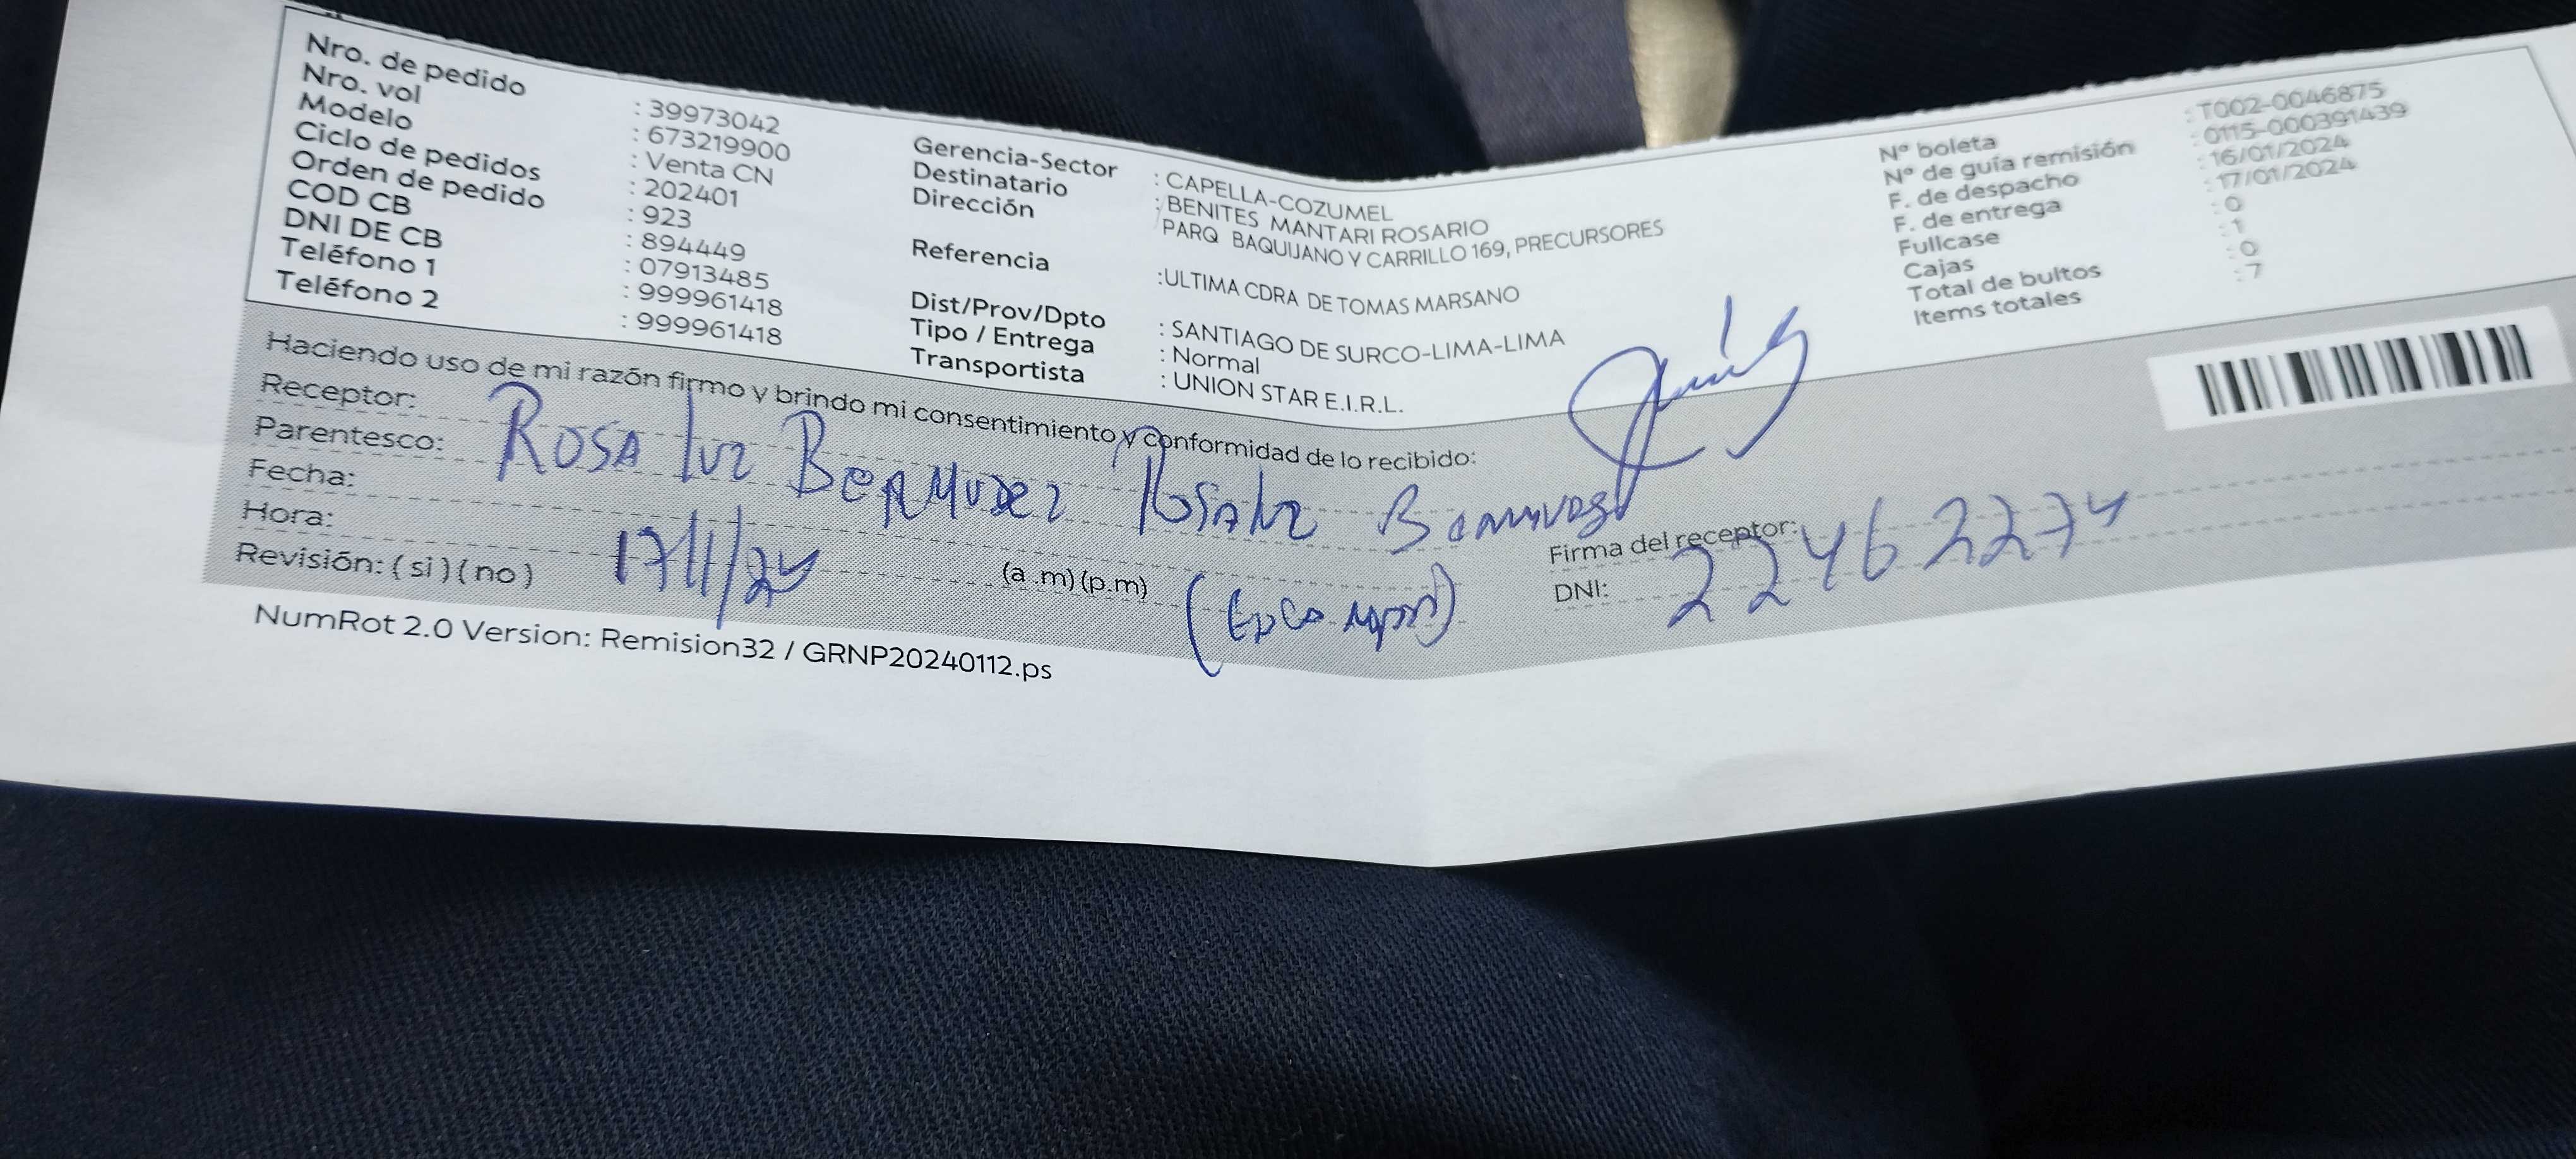 Nro. de pedido : 39973042
Nro. vol : 673219900
Modelo : Venta CN
Ciclo de pedidos : 202401
Orden de pedido : 923
COD CB : 894449
DNI DE CB : 07913485
Teléfono 1 : 999961418
Teléfono 2 : 999961418
Gerencia-Sector : CAPELLA-COZUMEL
Destinatario : BENITES MANTARI ROSARIO
Dirección PARQ BAQUIJANO Y CARRILLO 169, PRECURSORES
Referencia :ULTIMA CDRA DE TOMAS MARSANO
Dist/Prov/Dpto : SANTIAGO DE SURCO-LIMA-LIMA
Tipo / Entrega : Normal
Transportista : UNION STAR E.I.R.L.
Nº boleta : T002-0046875
Nº de guía remisión : 0115-000391439
F. de despacho : 16/01/2024
F. de entrega : 17/01/2024
Fullcase : 0
Cajas : 1
Total de bultos : 0
Items totales : 7
Haciendo uso de mi razón firmo y brindo mi consentimiento y conformidad de lo recibido:
Receptor: ROSA luz BERMUDEZ
Parentesco:
Fecha: 17/1/24
Hora: (a .m) (p.m)
Revisión: ( si ) ( no )
Firma del receptor:
DNI: 22462274
NumRot 2.0 Version: Remision32 / GRNP20240112.ps